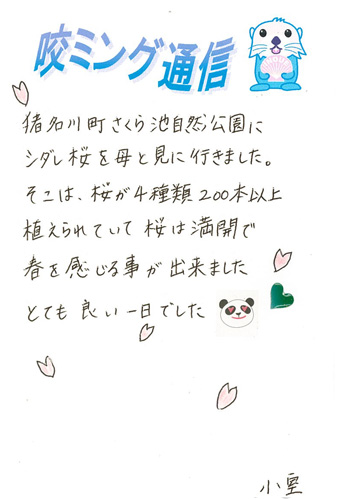 咬ミング通信
猪名川町さくら池自然公園に
シダレ桜を母と見に行きました。
そこは、桜が4種類200本以上
植えられていて桜は満開で
春を感じる事が出来ました
とても良い一日でした
小室